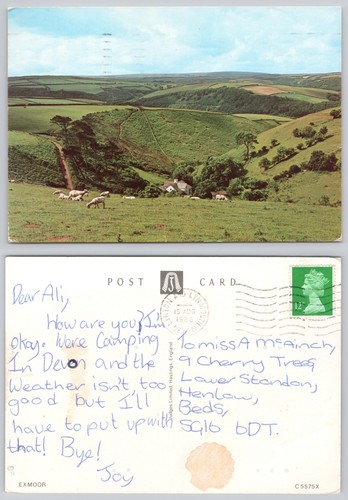 POST CARD
Dear Ali,
How are you? I'm
okay. We're Camping
In Devon and the
Weather isn't too
good but I'll
have to put up with
that! Bye!
Joy
Judges Limited, Hastings, England
15 AUG
1986
12
To miss A McAinch,
9 Cherry Trees,
Lower Stondon,
Henlow,
Beds,
SG16 6DT.
EXMOOR
C5575X